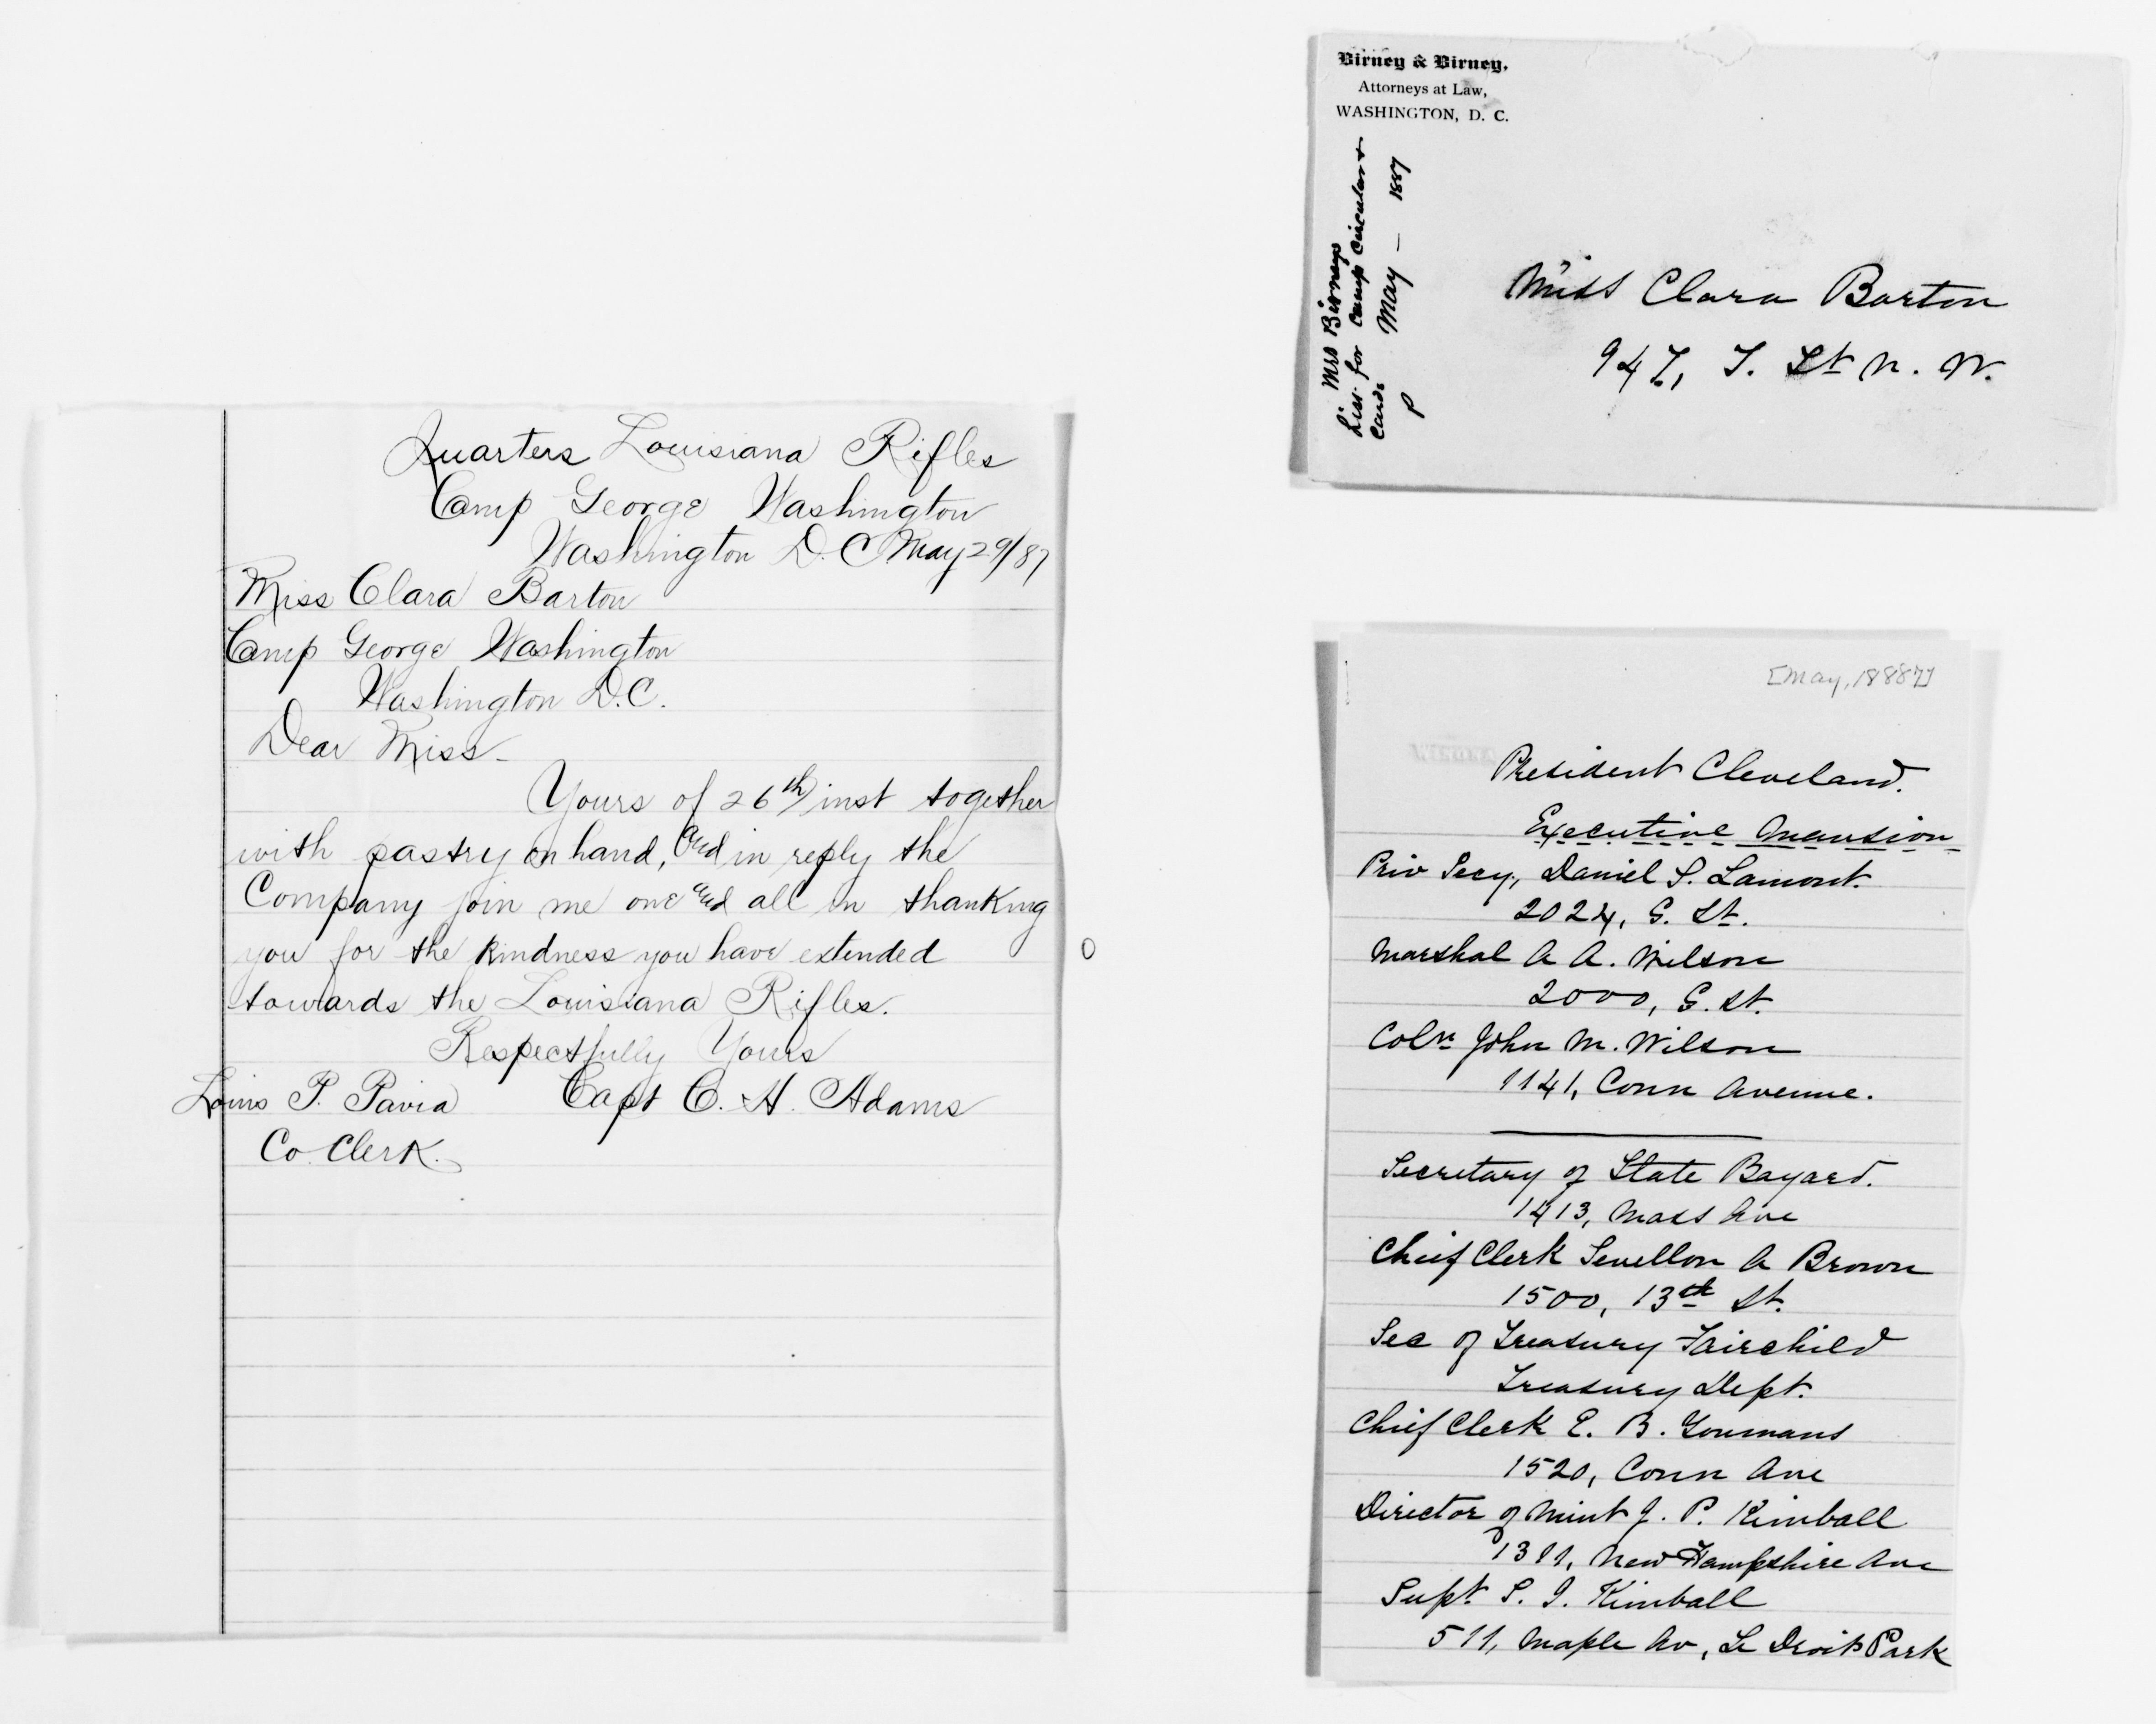 Quarters Louisiana Rifles
Camp George Washington
Washington D.C. May 29/87
Miss Clara Barton
Camp George Washington
Washington D.C.
Dear Miss-
Yours of 26th inst together
with pastry on hand, and in reply the
Company join me one and all in thanking
you for the kindness you have extended
towards the Louisiana Rifles.
Respectfully Yours
Louis P. Pavia Capt C. H. Adams
Co. Clerk.
Birney & Birney.
Attorneys at Law,
WASHINGTON, D. C.
Mrs Birneys
List for Camp Circulars &
Cards May - 1887
P
Miss Clara Barton
947, T. St N. W.
[May, 1887]
President Cleveland.
Executive Mansion
Priv Secy, Daniel S. Lamont.
2024, G. St.
Marshal A A. Wilson
2000, G. St.
Coln John M. Wilson
1141, Conn Avenue.
Secretary of State Bayard.
1413, Mass Ave
Chief Clerk Sevellon A Brown
1500, 13th St.
Sec of Treasury Fairchild
Treasury Dept.
Chief Clerk E. B. Youmans
1520, Conn Ave
Director of Mint J. P. Kimball
1311, New Hampshire Ave
Supt S. I. Kimball
511, Maple Av, Le Droit Park